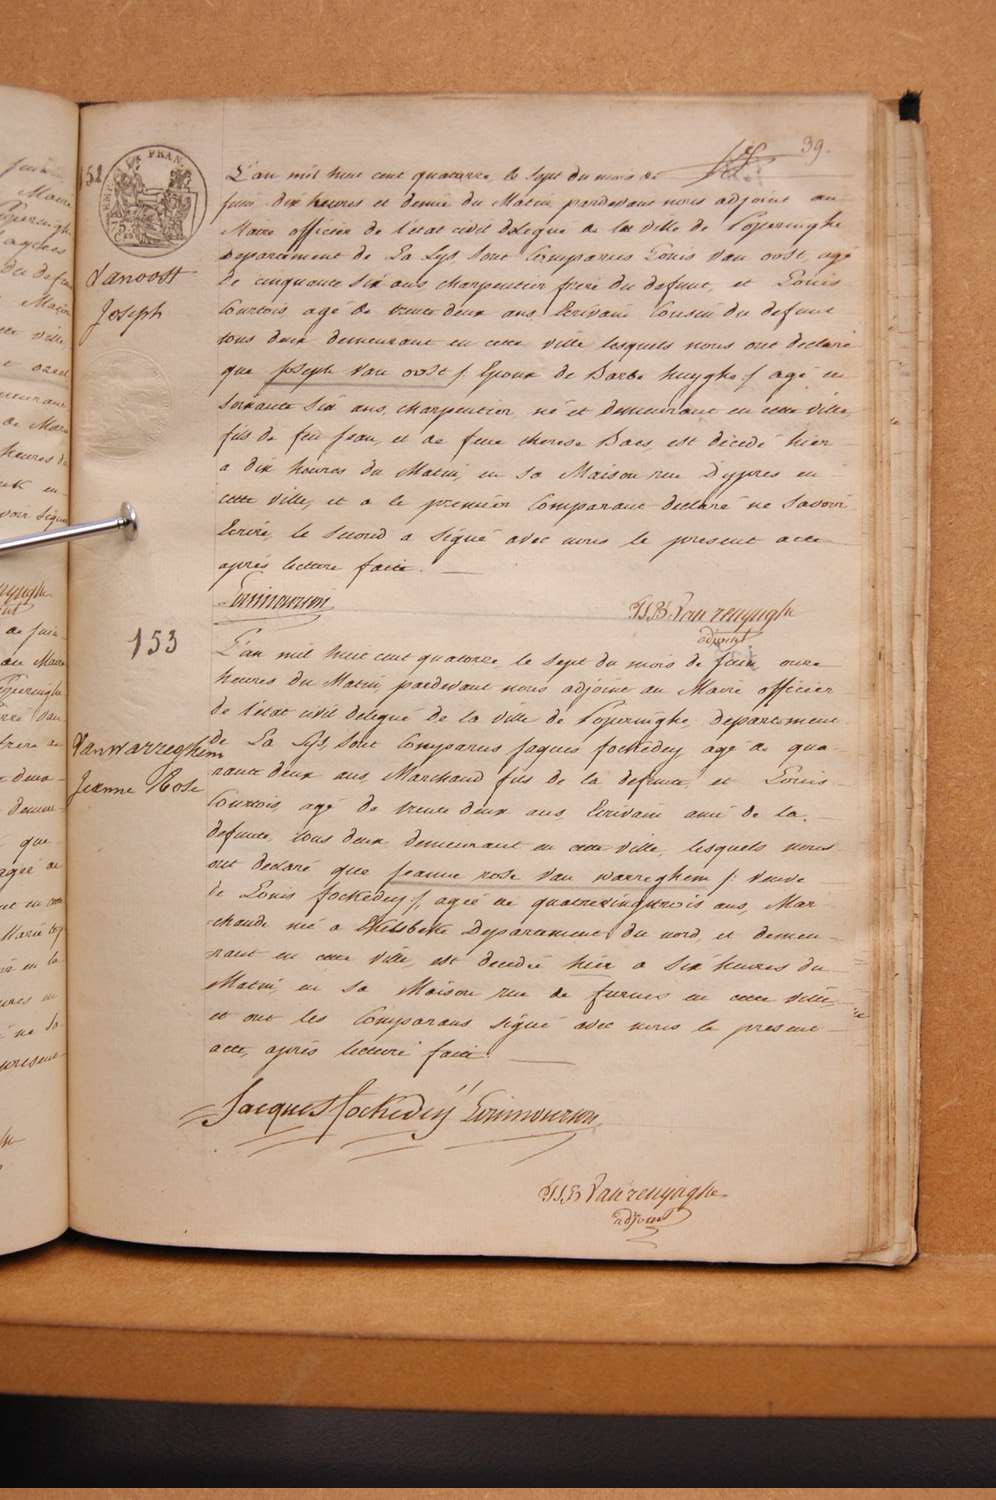 39.
152
L'an mil huit cent quatorze, le sept du mois de
juin dix heures et demie du Matin pardevant nous adjoint au
Maire officier de l'état civil delegué de la ville de Poperinghe
Departement de La Lys, sont Comparus Louis Van oost, agé
de cinquante six ans charpentier frere du defunt, et Louis
Courtois, agé de trente deux ans, Ecrivain Cousin du defunt
tous deux demeurant en cette ville lesquels nous ont declaré
que Joseph Van oost /: Epoux de Barbe huyghe :/ agé de
soixante six ans, charpentier, né et demeurant en cette ville,
fils de feu Jean, et de feue therese Baes, est décedé hier
a dix heures du Matin, en sa Maison rue D'ypres en
cette ville, et a le premier Comparant declaré ne savoir
Ecrire, le second a signé avec nous le present acte
après lecture faite.
Vanoost
Joseph
Van renynghe
adjoint
153
L'an mil huit cent quatorze, le sept du mois de juin, onze
heures du Matin, pardevant nous adjoint au Maire officier
de l'état civil delegué de la ville de Poperinghe, Departement
de La Lys, sont Comparus Jaques fockedey agé de qua-
rante deux ans, Marchand fils de la defunte, et Louis
Courtois, agé de trente deux ans Ecrivain ami de la
defunte, tous deux demeurant en cette ville, lesquels nous
ont declaré que Jeanne rose Van warreghem /: veuve
de Louis fockedey :/, agée de quatrevingtrois ans, Mar-
chande née a Departement du nord, et demeu-
rant en cette ville, est decedée hier a six heures du
Matin, en sa Maison rue de furnes en cette ville,
et ont les Comparans signé avec nous le present
acte, après lecture faite.
Vanwarreghem
Jeanne Rose
Jacques fockedey
Van renynghe
adjoint